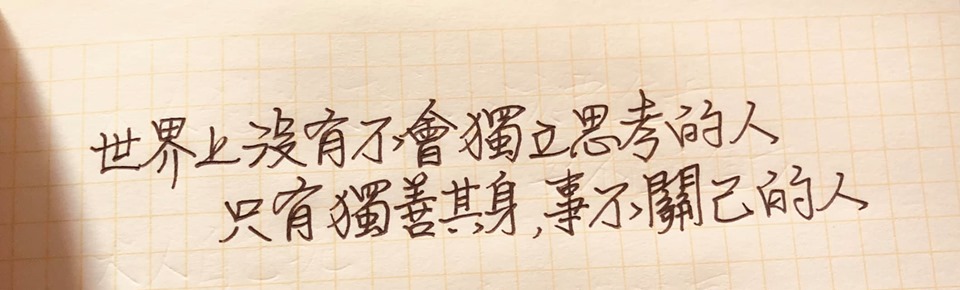 世界上沒有不會獨立思考的人
只有獨善其身,事不關己的人